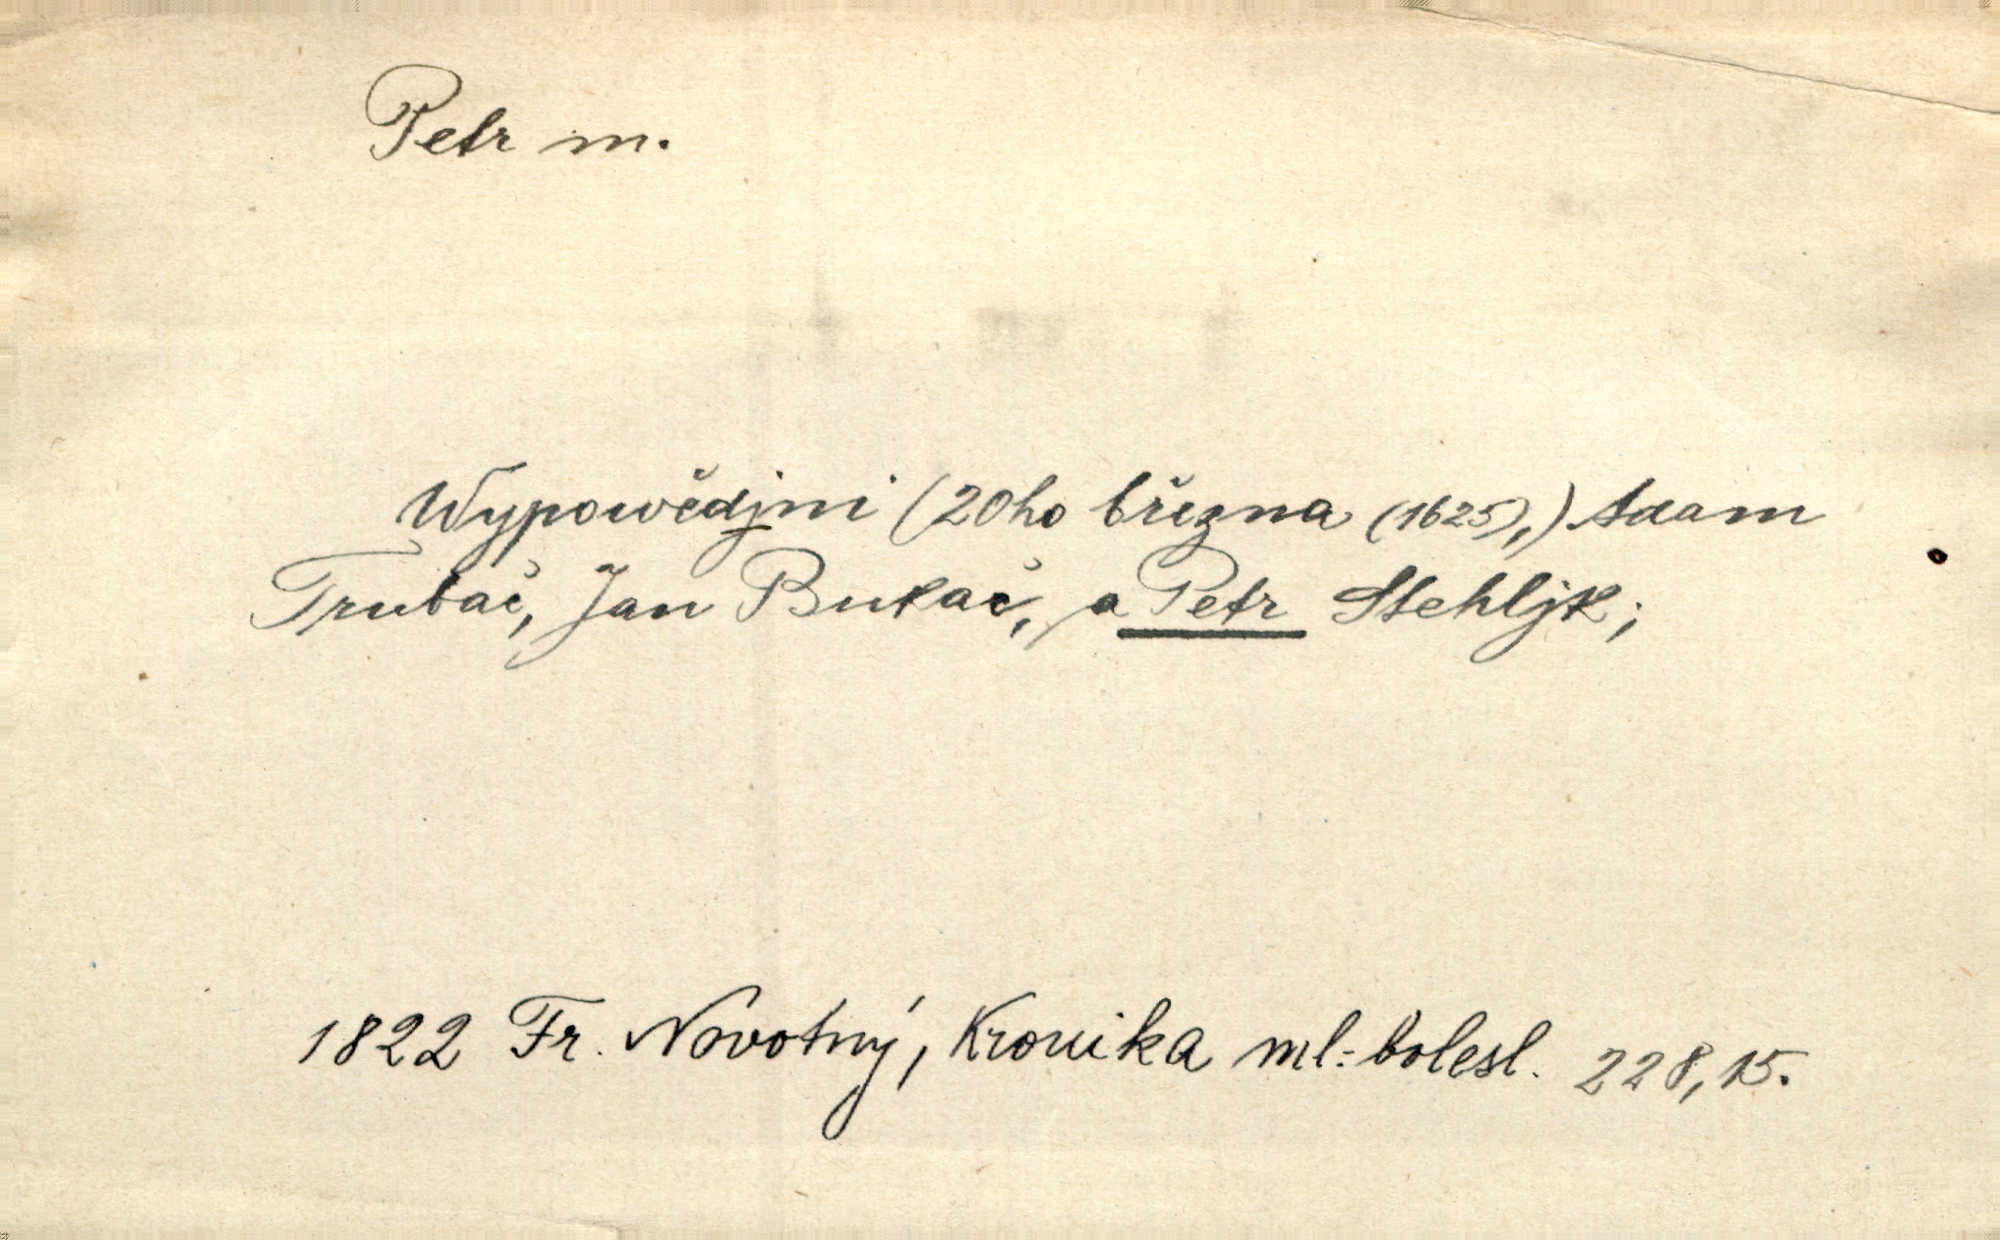 Petr m.
Wypowědjni (20ho března (1625),) Adam
Trubač, Jan Bukač, a Petr Stehljk;
1822 Fr. Novotný, Kronika ml.-bolesl. 228, 15.